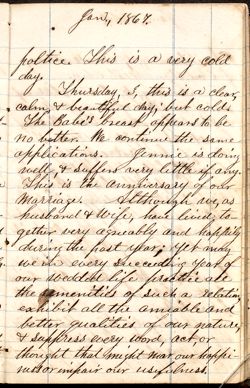 Jan, 1867.
poltice. This is a very cold
day.
Thursday, 3, this is a clear,
calm & beautiful day, but cold.
The Babe's breast appears to be
no better. We continue the same
applications. Jennie is doing
well, & suffers very little if any.
This is the anniversary of our
Marriage. Although we, as
husband & Wife, have lived to-
gether very agreeably and happily
during the past year, yet may
we in every succeeding year of
our wedded life practice all
the amenities of such a relation
exhibit all the amiable and
better qualities of our nature,
& suppress every word, act, or
thought that might mar our happi-
ness or impair our usefulness.